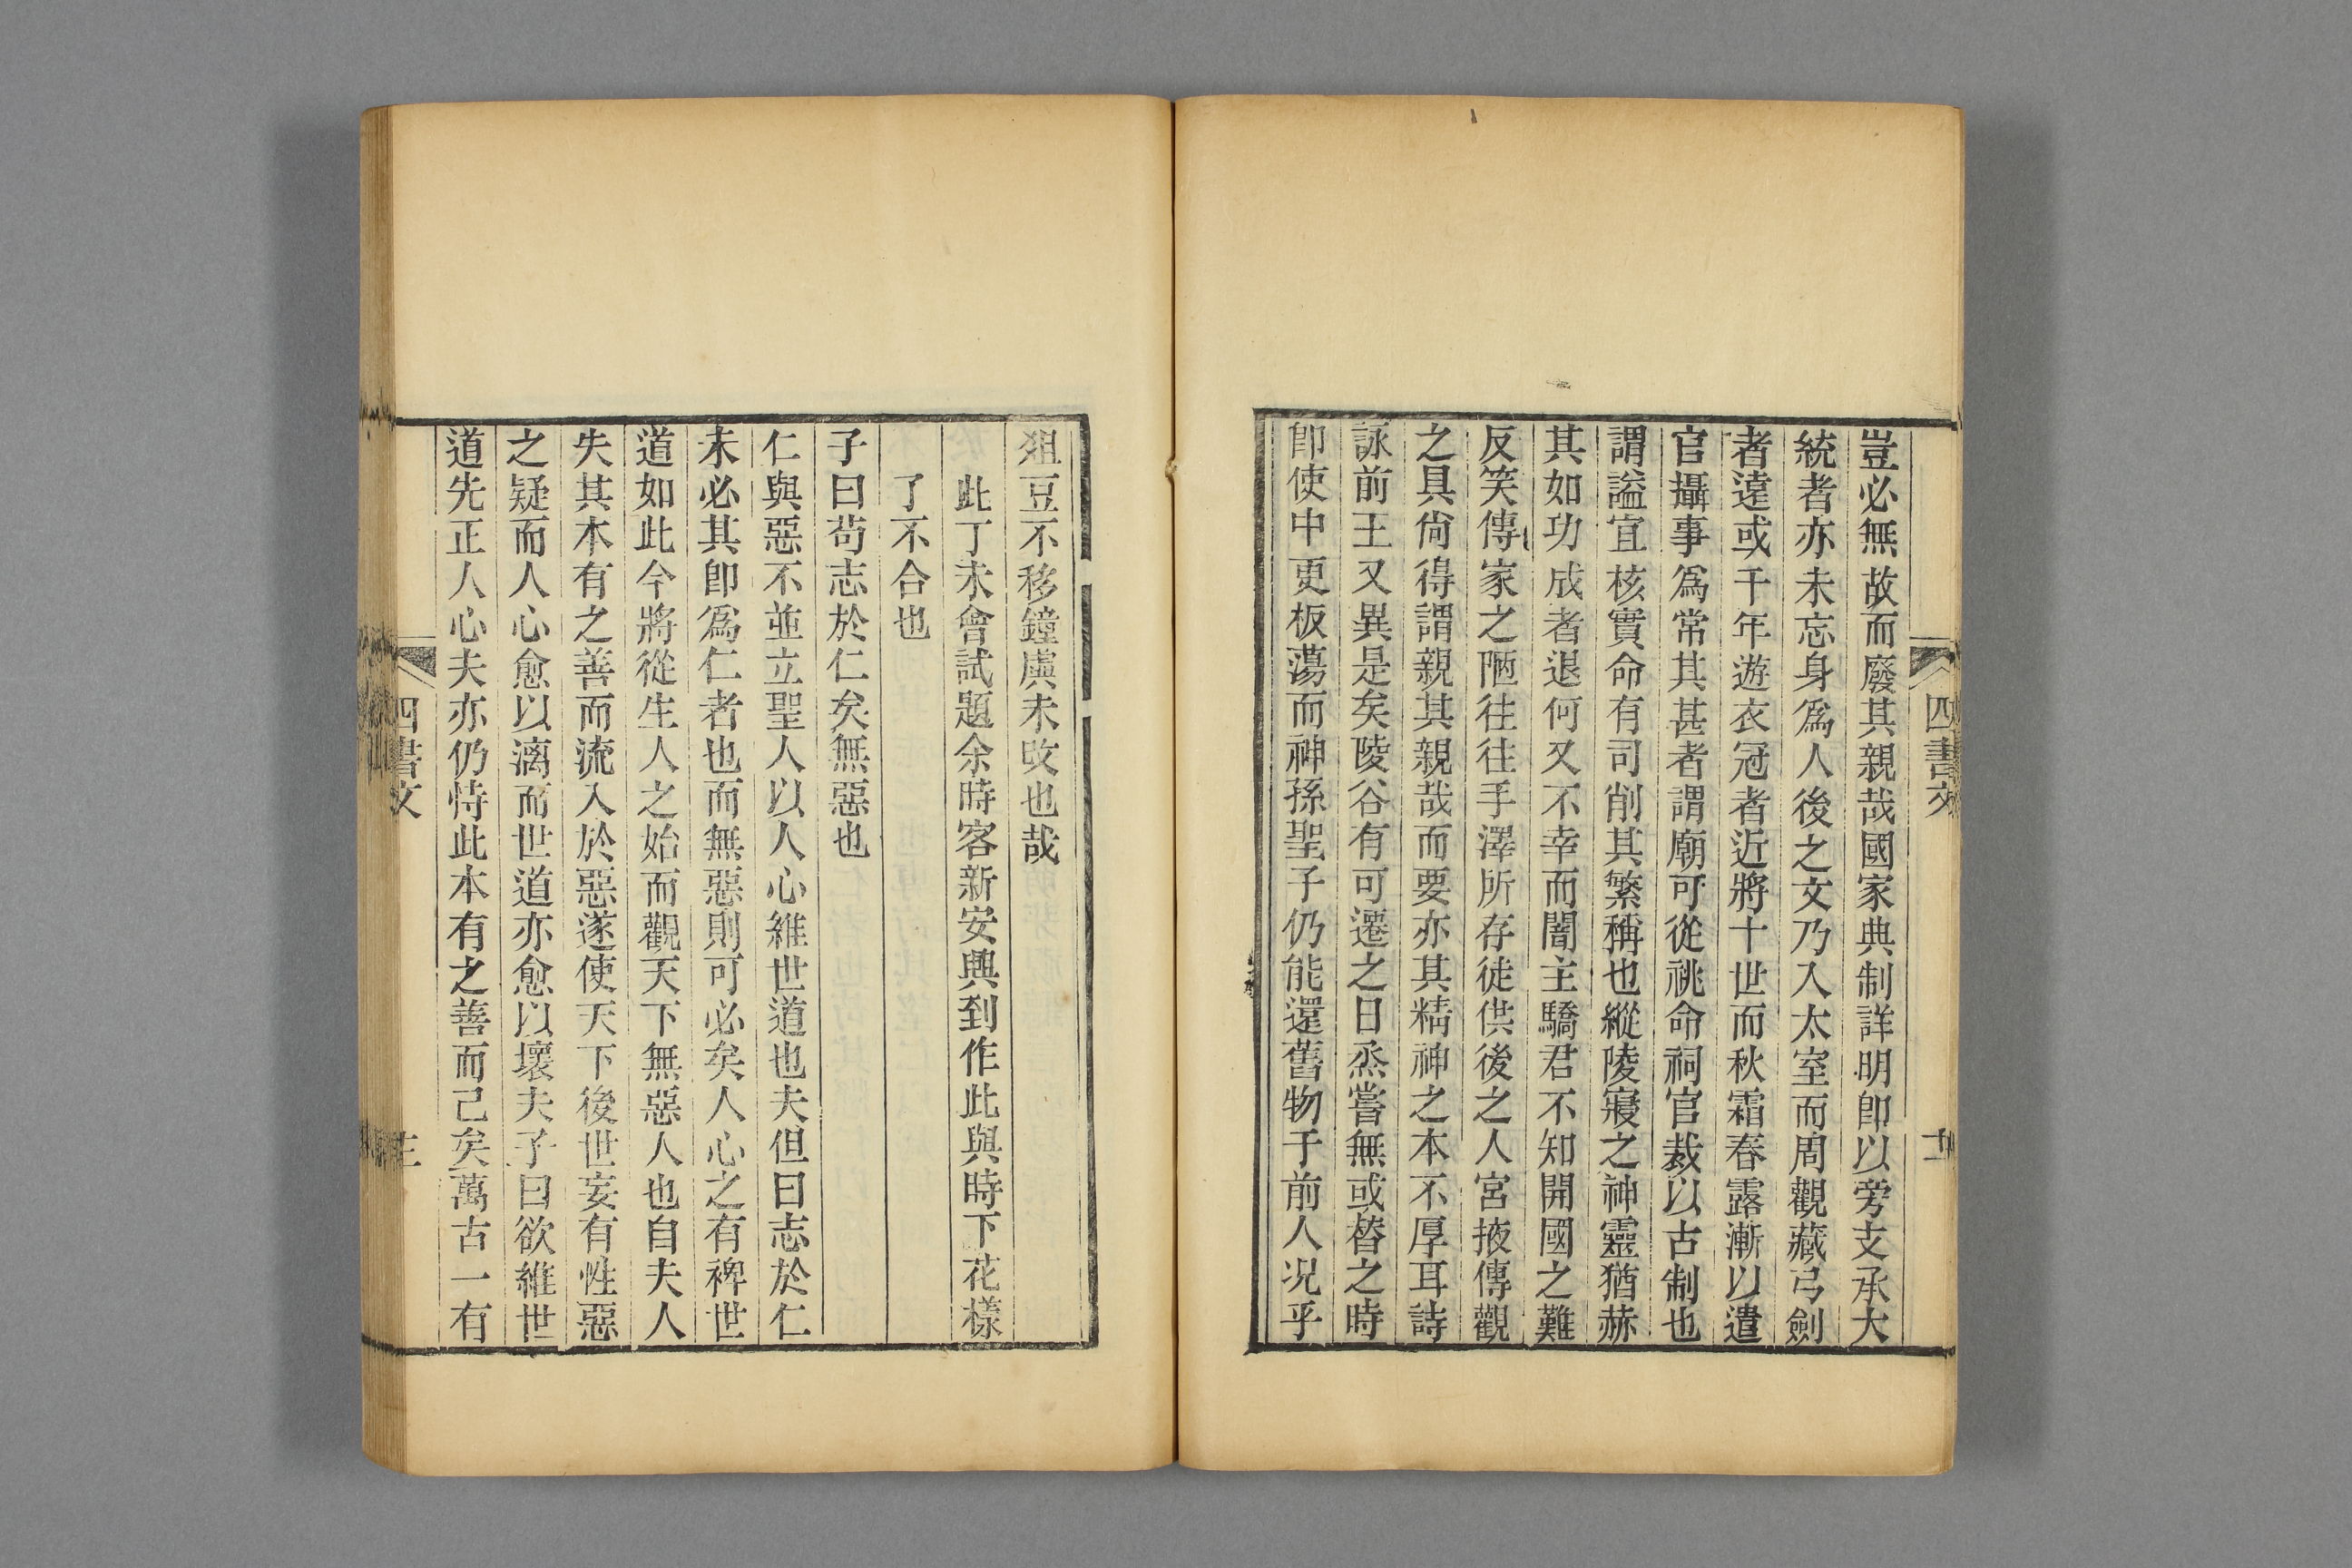 四書文
豈必無故而廢其親哉國家典制詳明卽以旁支承大
統者亦未忘身爲人後之文乃入太室而周觀藏弓劍
者遠或千年遊衣冠者近將十世而秋霜春露漸以遣
官攝事爲常其甚者謂廟可從祧命祠官裁以古制也
謂謚宜核實命有司削其繁稱也縱陵寢之神靈猶赫
其如功成者退何又不幸而闇主驕君不知開國之難
反笑傳家之陋往往手澤所存徒供後之人宮掖傳觀
之具尙得謂親其親哉而要亦其精神之本不厚耳詩
詠前王又異是矣陵谷有可遷之日烝嘗無或替之時
卽使中更板蕩而神孫聖子仍能還舊物于前人况乎
俎豆不移鐘虡未改也哉
此丁未會試題余時客新安興到作此與時下花樣
了不合也
子曰苟志於仁矣無惡也
仁與惡不並立聖人以人心維世道也夫但曰志於仁
未必其卽爲仁者也而無惡則可必矣人心之有裨世
道如此今將從生人之始而觀天下無惡人也自夫人
失其本有之善而流入於惡遂使天下後世妄有性惡
之疑而人心愈以漓而世道亦愈以壞夫子曰欲維世
道先正人心夫亦仍恃此本有之善而己矣萬古一有
四書文